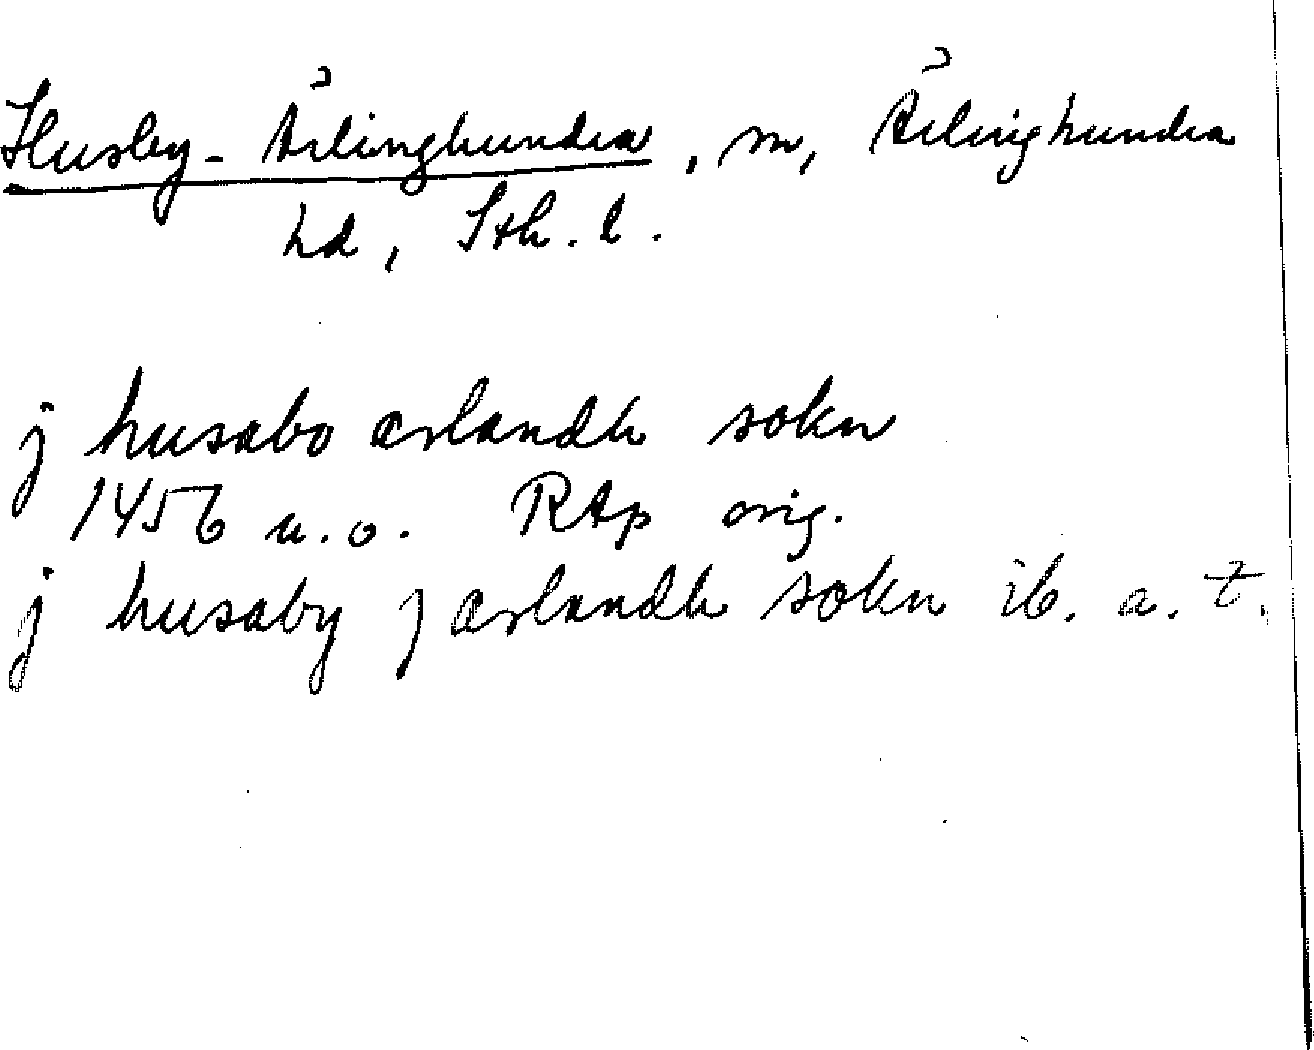 Husby-Ärlinghundra, sn, Ärlinghundra
hd, Sth. l.
j husabo ærlandh sokn
1456 u.o. RAp orig.
j husaby j ærlandh sokn ib. a. t.